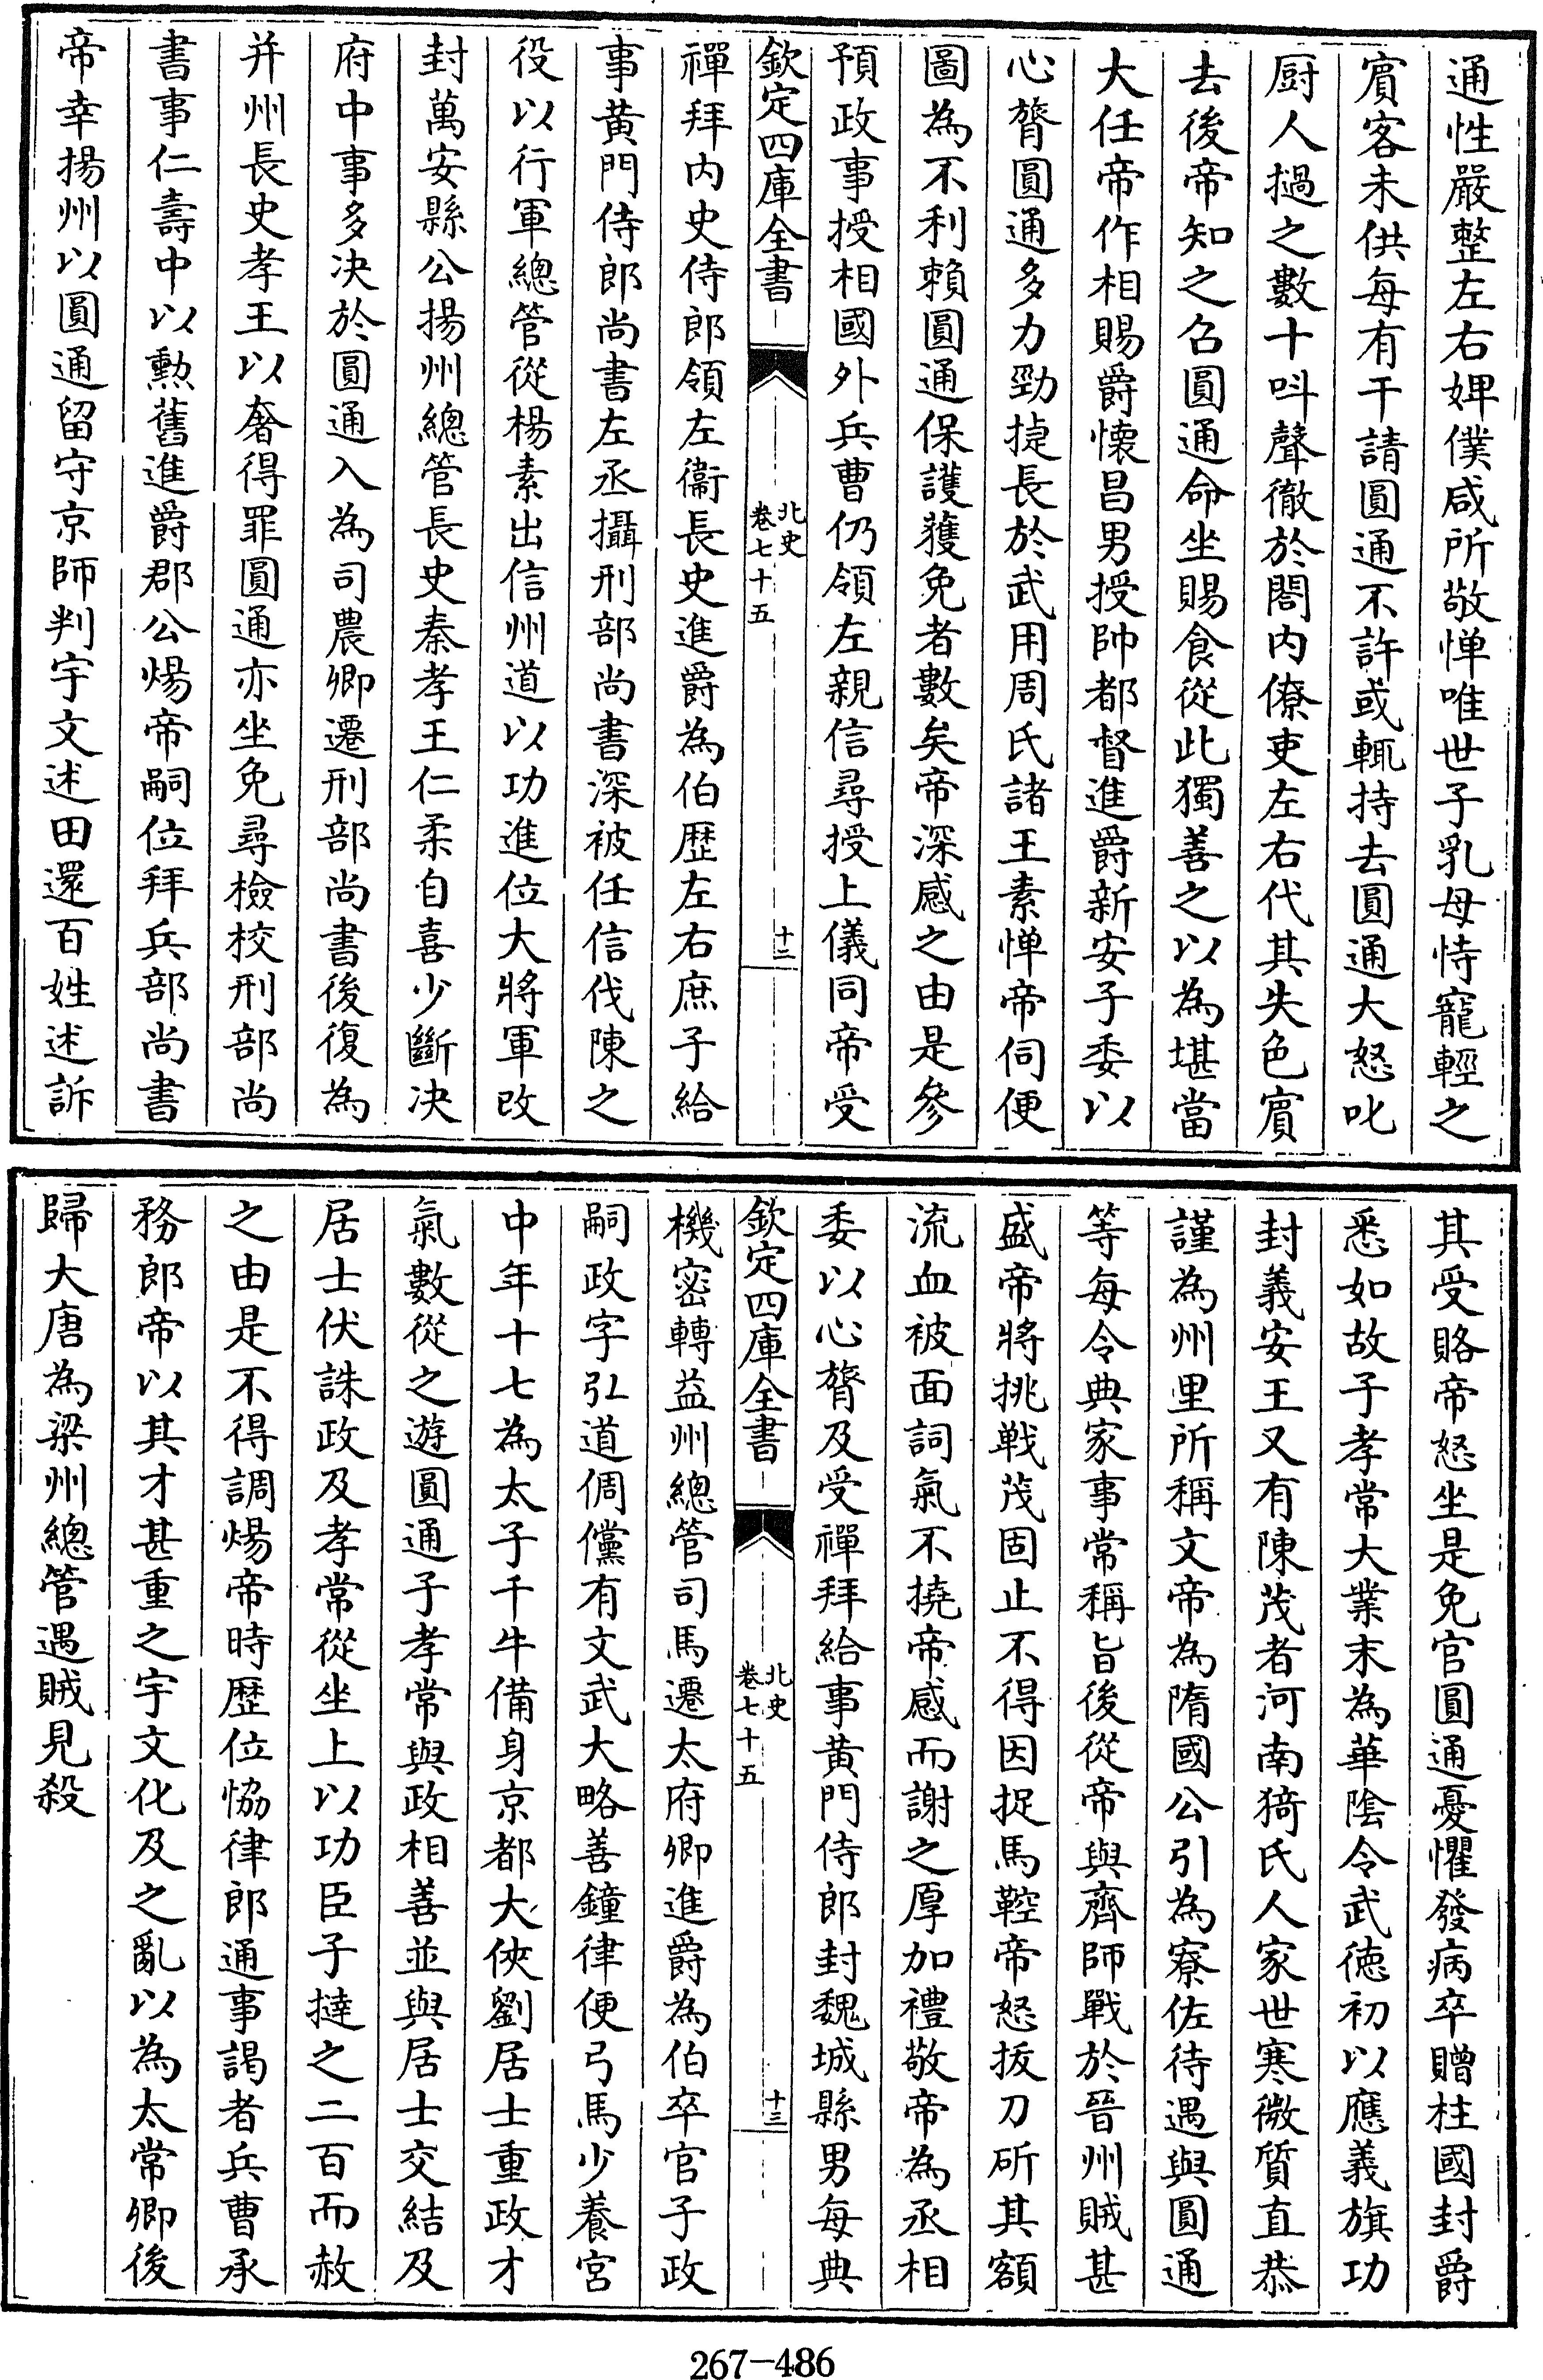 通性嚴整左右婢僕咸所敬憚唯世子乳母恃寵輕之
賔客未供每有干請圓通不許或輒持去圓通大怒叱
厨人撾之數十呌聲徹於閤内僚吏左右代其失色賔
去後帝知之召圓通命坐賜食從此獨善之以為堪當
大任帝作相賜爵懐昌男授帥都督進爵新安子委以
心膂圓通多力勁捷長於武用周氏諸王素憚帝伺便
圖為不利賴圓通保護獲免者數矣帝深感之由是參
預政事授相國外兵曹仍領左親信尋授上儀同帝受
欽定四庫全書
北史
卷七十五
十二
禪拜内史侍郎領左衞長史進爵為伯歴左右庶子給
事黄門侍郎尚書左丞攝刑部尚書深被任信伐陳之
役以行軍總管從楊素出信州道以功進位大將軍改
封萬安縣公揚州總管長史秦孝王仁柔自喜少斷决
府中事多决於圓通入為司農卿遷刑部尚書後復為
并州長史孝王以奢得罪圓通亦坐免尋檢校刑部尚
書事仁壽中以勲舊進爵郡公煬帝嗣位拜兵部尚書
帝幸揚州以圓通留守京師判宇文述田還百姓述訴
其受賂帝怒坐是免官圓通憂懼發病卒贈柱國封爵
悉如故子孝常大業末為華陰令武徳初以應義旗功
封義安王又有陳茂者河南猗氏人家世寒微質直恭
謹為州里所稱文帝為隋國公引為寮佐待遇與圓通
等每令典家事常稱旨後從帝與齊師戰於晉州賊甚
盛帝將挑戰茂固止不得因捉馬鞚帝怒拔刀斫其額
流血被面詞氣不撓帝感而謝之厚加禮敬帝為丞相
委以心膂及受禪拜給事黄門侍郎封魏城縣男每典
欽定四庫全書
北史
卷七十五
十三
機密轉益州總管司馬遷太府卿進爵為伯卒官子政
嗣政字弘道倜儻有文武大略善鐘律便弓馬少養宮
中年十七為太子千牛備身京都大俠劉居士重政才
氣數從之遊圓通子孝常與政相善並與居士交結及
居士伏誅政及孝常從坐上以功臣子撻之二百而赦
之由是不得調煬帝時歴位恊律郎通事謁者兵曹承
務郎帝以其才甚重之宇文化及之亂以為太常卿後
歸大唐為梁州總管遇賊見殺
267-486